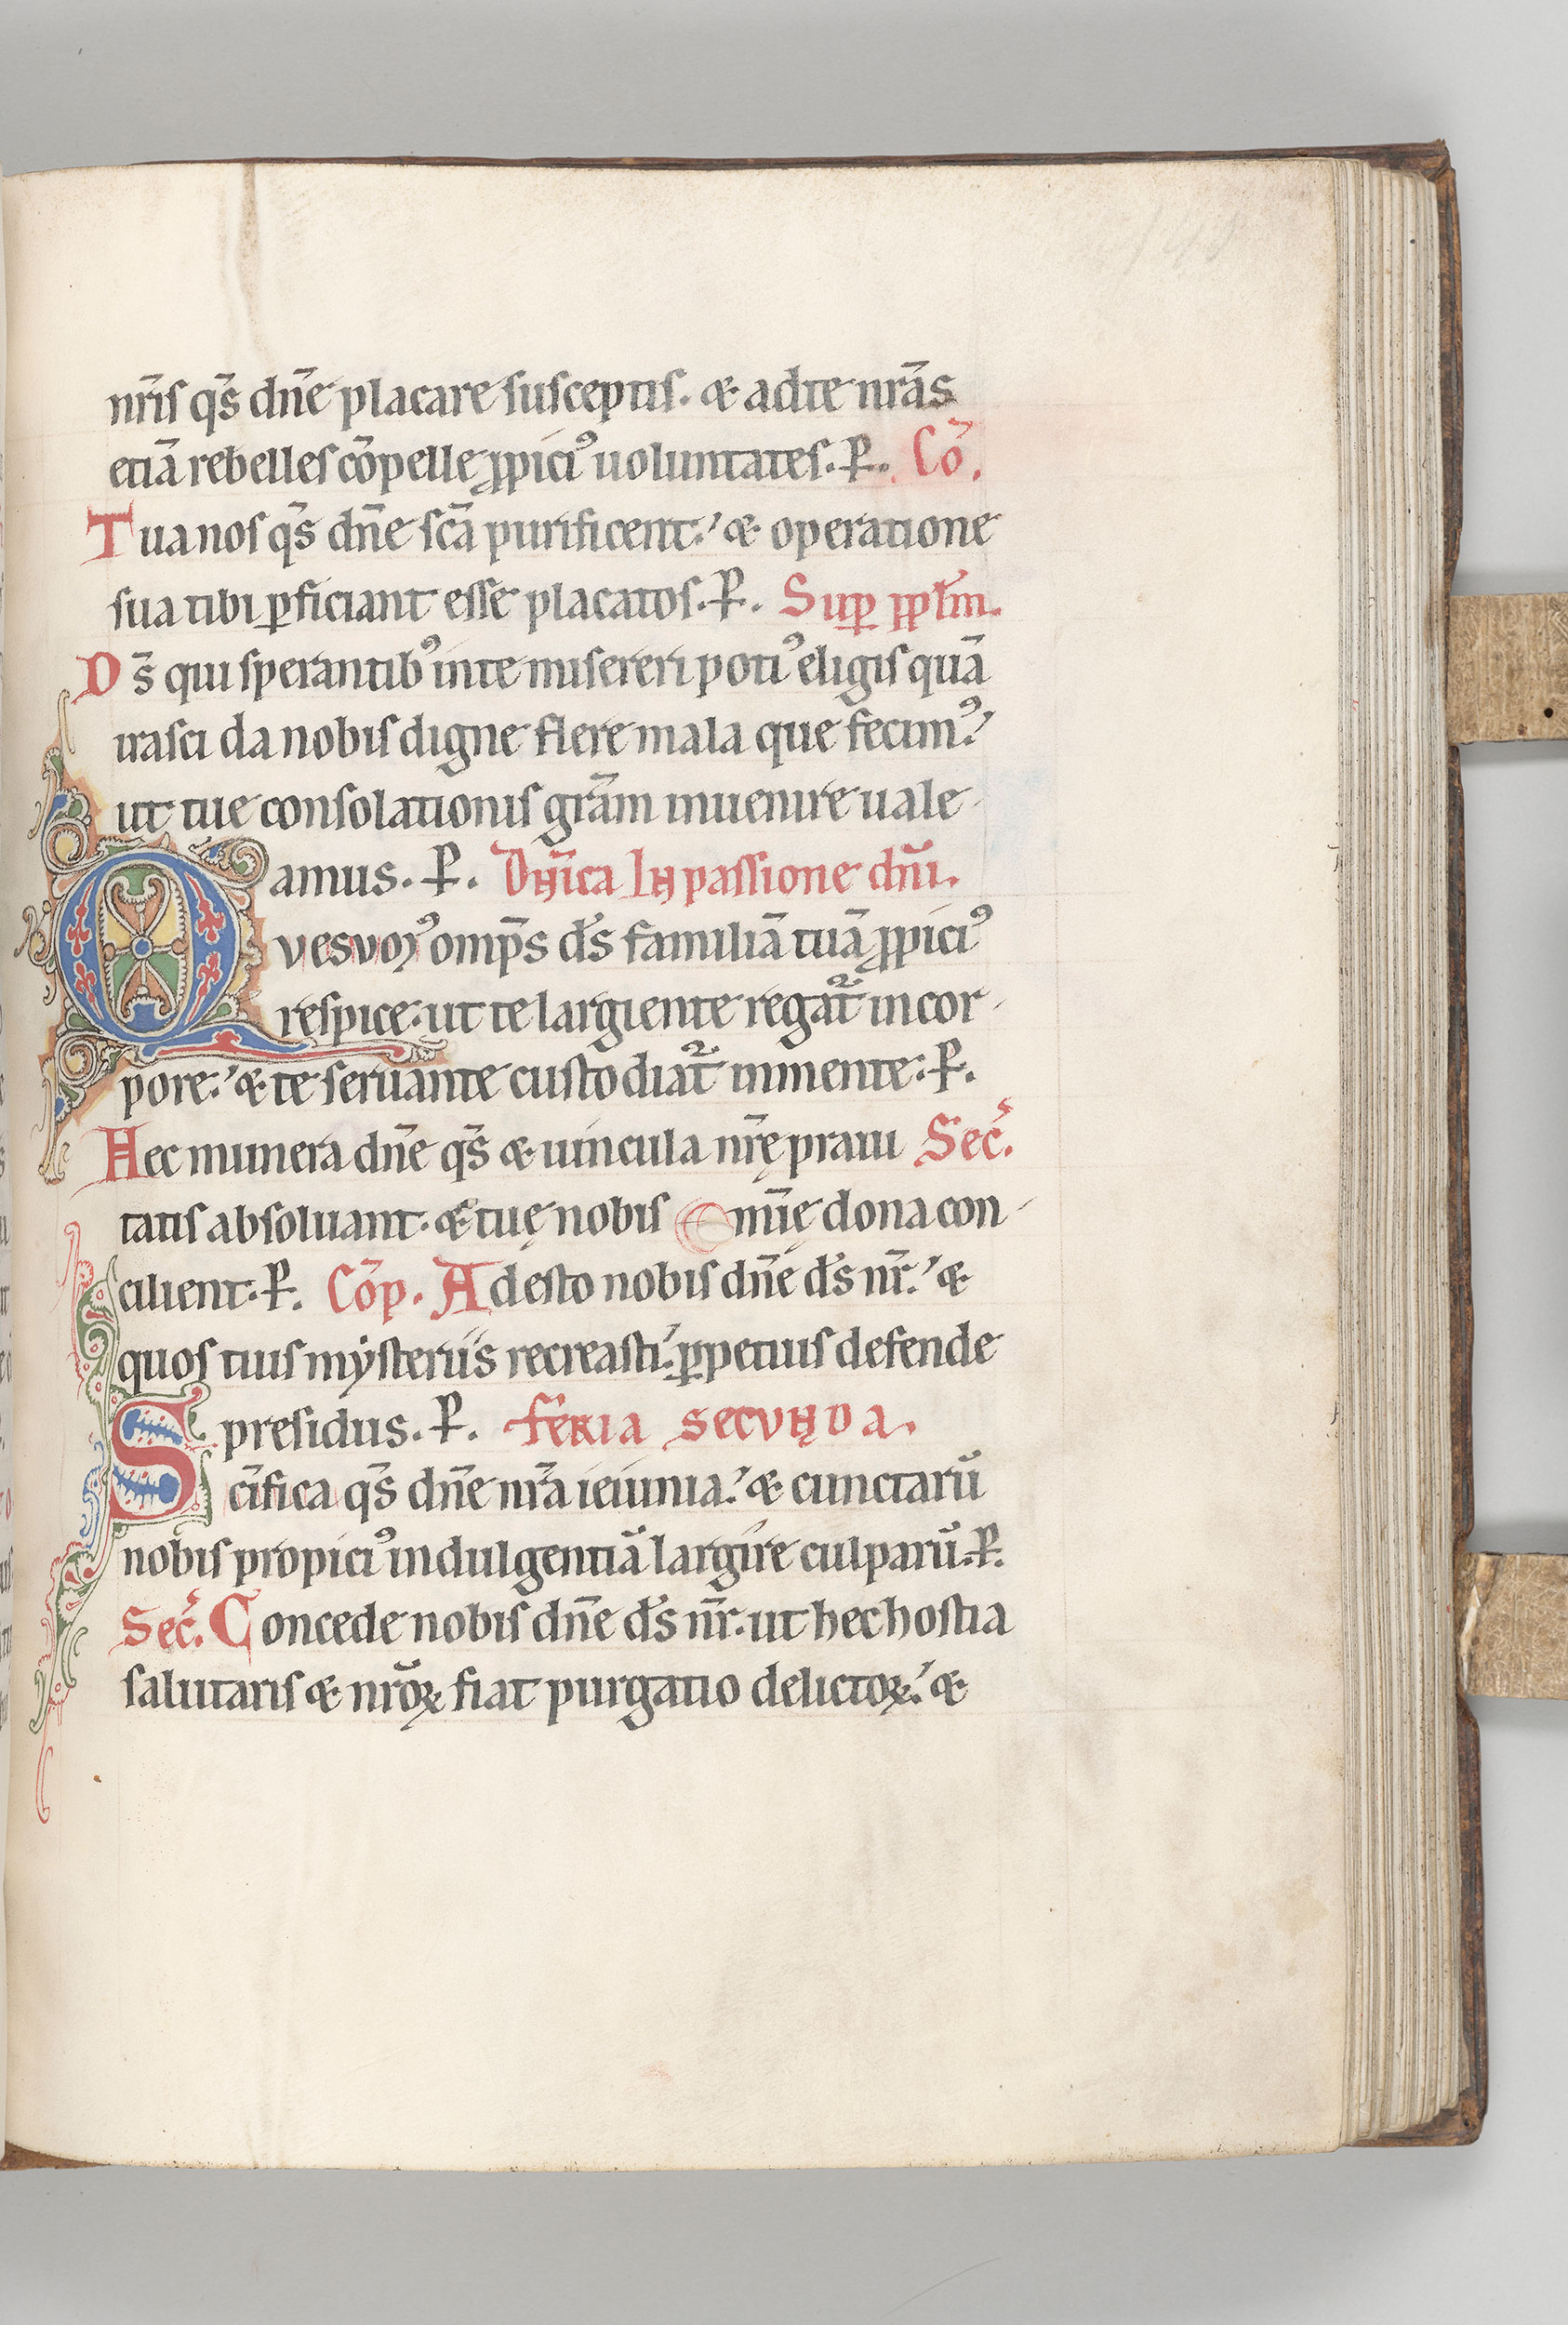 nr̄is q̄s dn̄e placare susceptis. & ad te nr̄as
etiā rebelles cōpelle ꝓpiciꝰ uoluntates. P̄. Cō.
Tua nos q̄s dn̄e sc̄a purificent: & operatione
sua tibi ꝑficiant esse placatos. P̄. Suꝑ ppl̄m.
D s̄ qui sperantibꝰ in te misereri potiꝰ eligis quā
irasci da nobis digne flere mala que fecimꝰ:
ut tue consolationis gr̄am inuenire uale
amus. P̄. Dn̄ica In passione dn̄i.
Qvesvmꝰ omp̄s d̄s familiā tuā ꝓpiciꝰ
respice: ut te largiente regat᷑ in cor
pore: & te seruante custodiat᷑ in mente: P̄.
Hec munera dn̄e q̄s & uincula nr̄ę praui Sec̄.
tatis absoluant. & tuę nobis mīę dona con
cilient. P̄. Cōp. Adesto nobis dn̄e d̄s nr̄: &
quos tuis mẏsteriis recreasti: ꝑpetuis defende
presidiis. P̄. feria secvnda.
Sc̄ifica q̄s dn̄e nr̄a ieiunia: & cunctarū
nobis propiciꝰ indulgentiā largire culparū. P̄.
Sec̄. Concede nobis dn̄e d̄s nr̄. ut hec hostia
salutaris & nr̄oꝝ fiat purgatio delictoꝝ: &